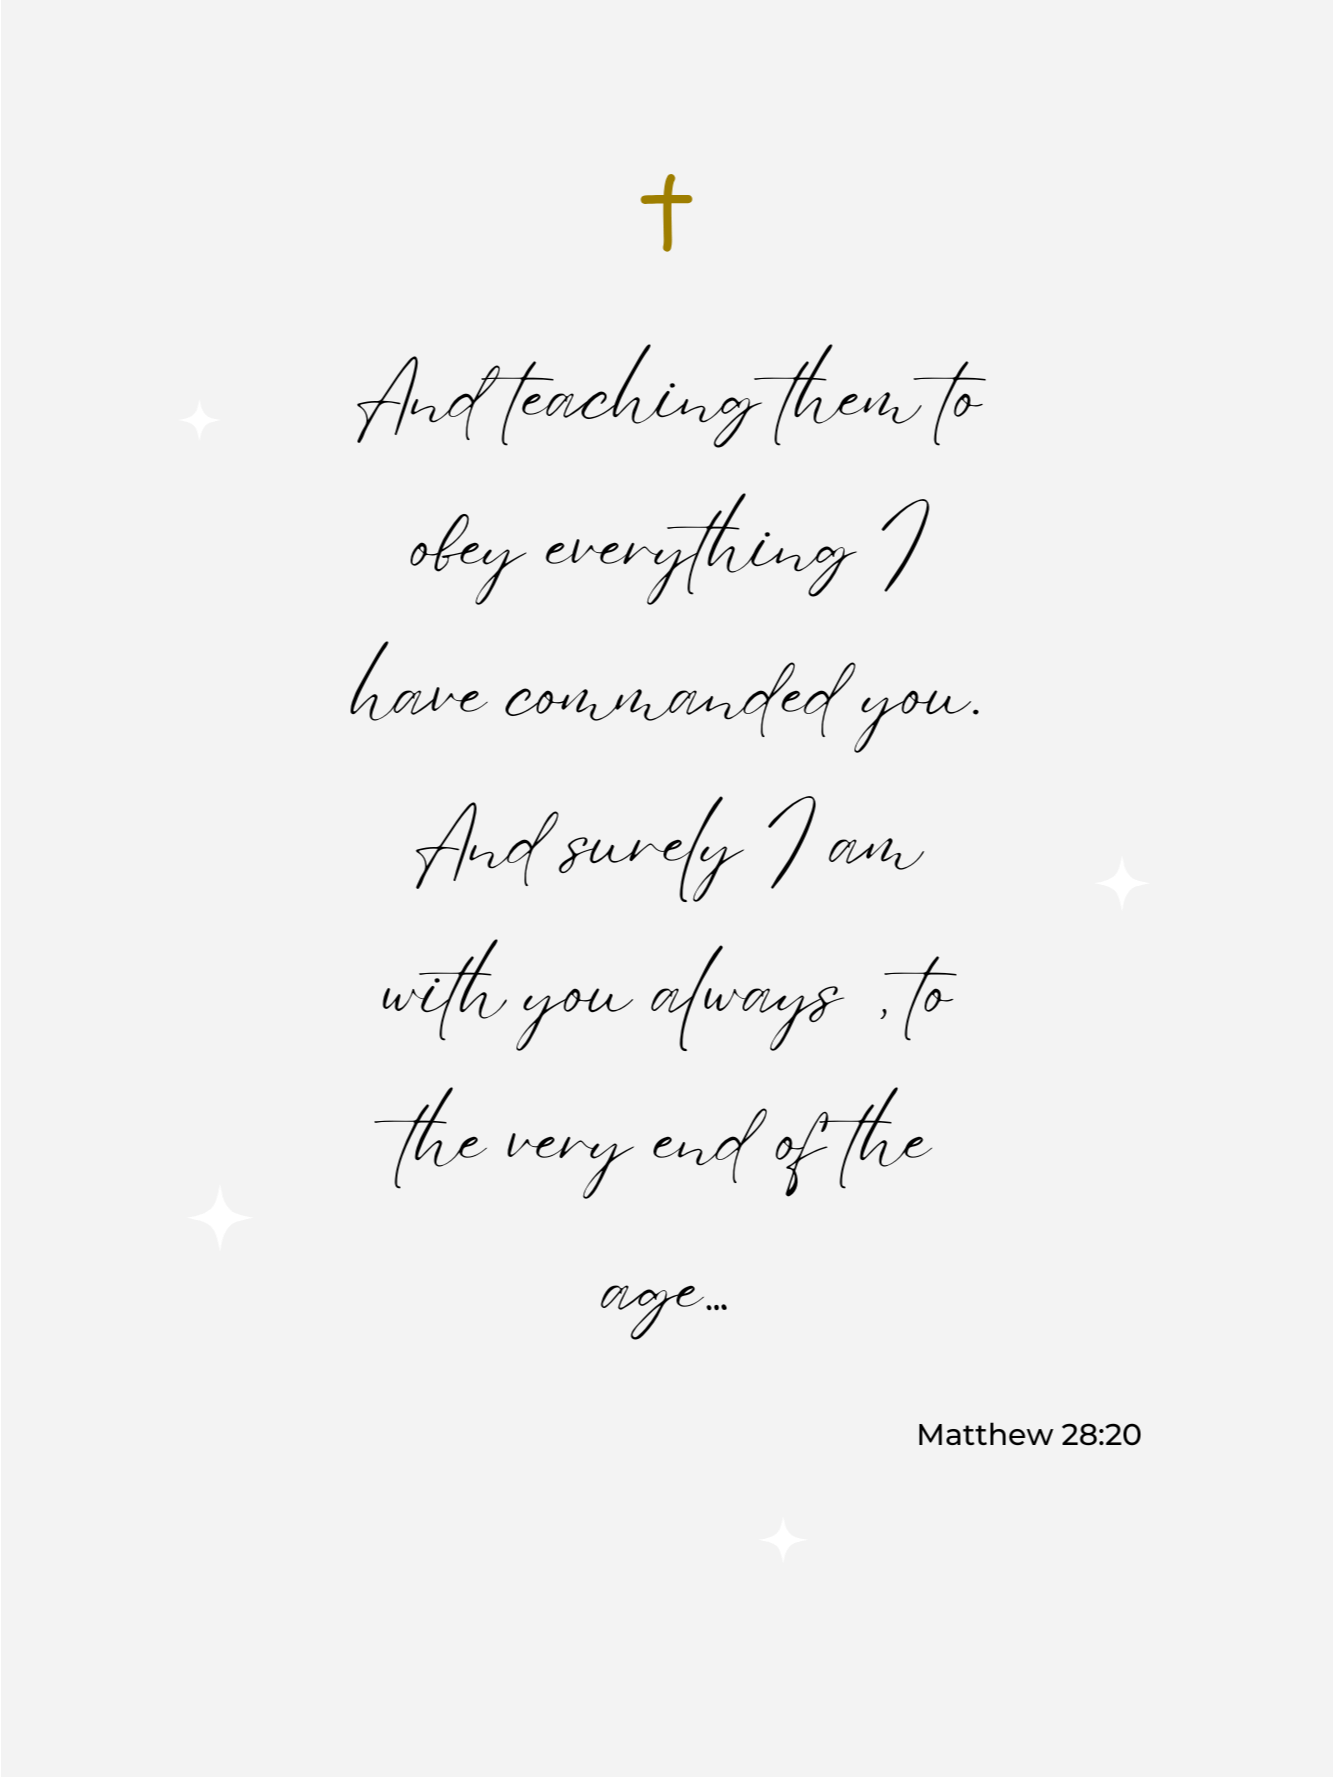 And teaching them to
obey everything I
have commanded you.
And surely I am
with you always , to
the very end of the
age...
Matthew 28:20